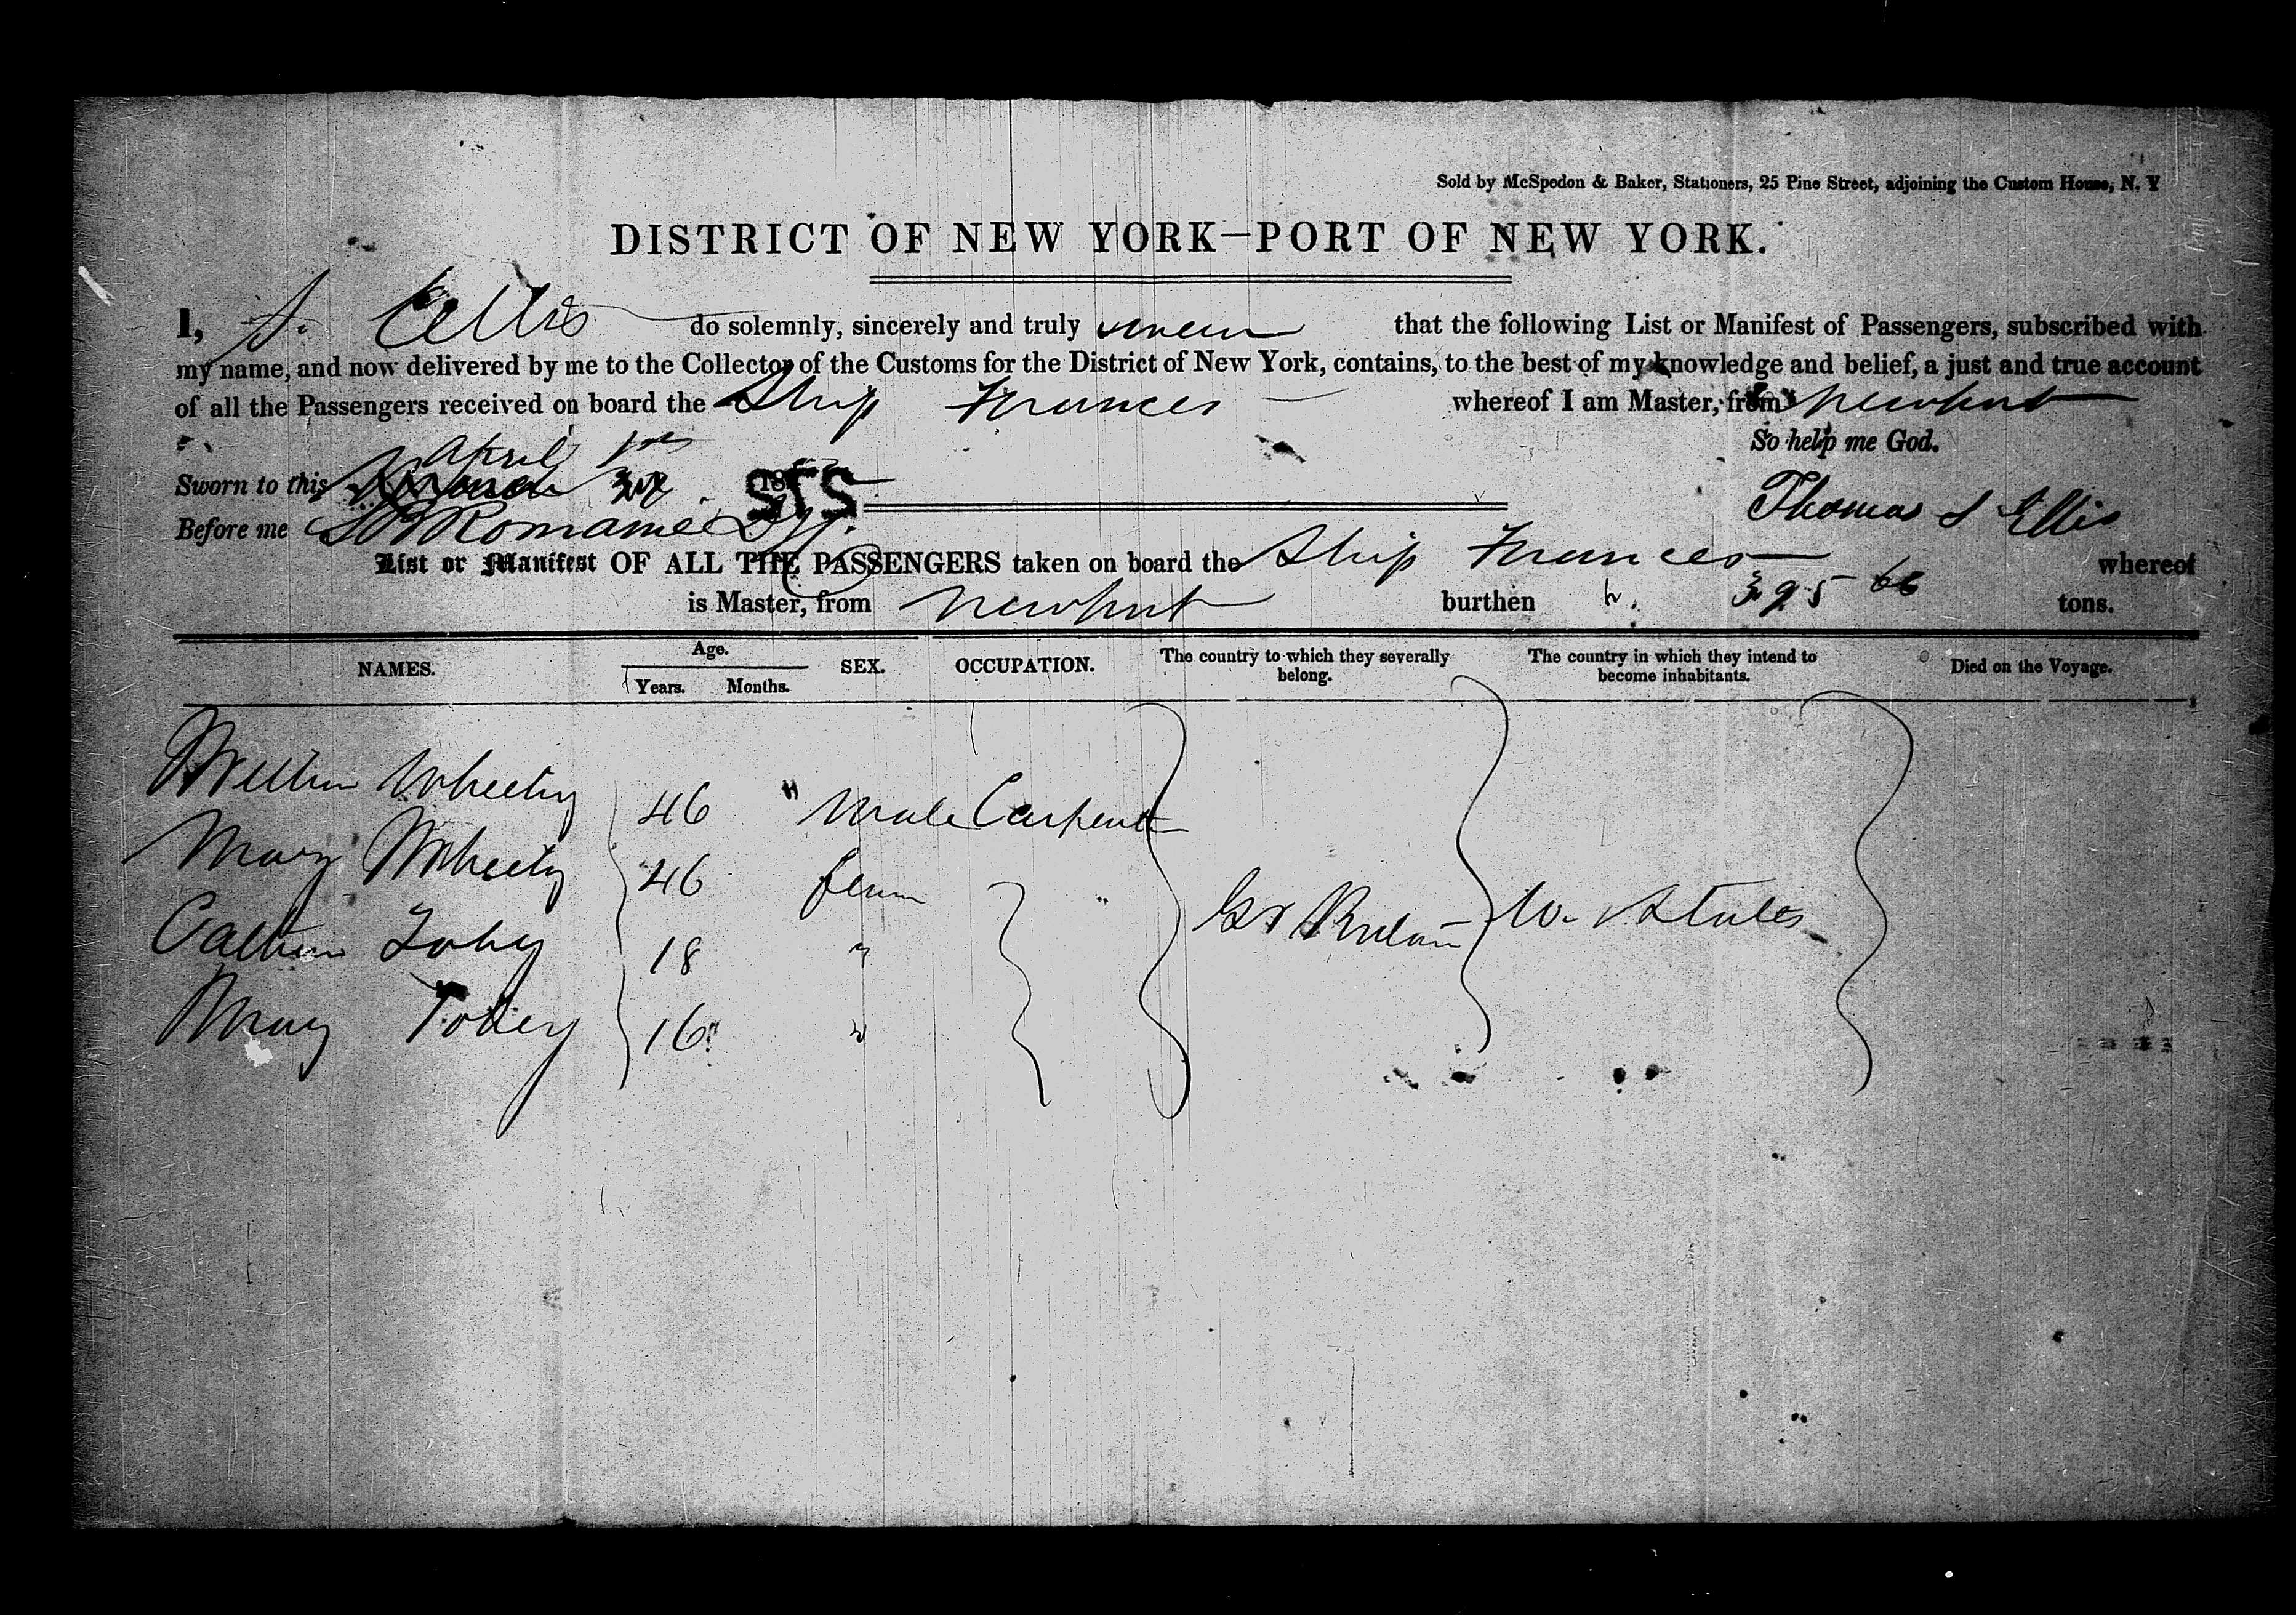 Sold by McSpedon & Baker, Stationers, 25 Pine Street, adjoining the Custom House, N. Y
DISTRICT OF NEW YORK—PORT OF NEW YORK.
I, Ellis do solemnly, sincerely and truly swear that the following List or Manifest of Passengers, subscribed with
my name, and now delivered by me to the Collector of the Customs for the District of New York, contains, to the best of my knowledge and belief, a just and true account
of all the Passengers received on board the Ship Frances whereof I am Master, from Newport
So help me God.
April 1st
Sworn to this March 18
STS
Thomas S Ellis
Before me
List or Manifest OF ALL THE PASSENGERS taken on board the Ship Frances whereof
is Master, from Newport burthen 395 66 tons.
NAMES. Age. Years. Months. SEX. OCCUPATION. The country to which they severally belong. The country in which they intend to become inhabitants. Died on the Voyage.
46 " male Carpent
Mary 46 fem "
18 "
Mary Tobey 16 "
Gt Britain U. States